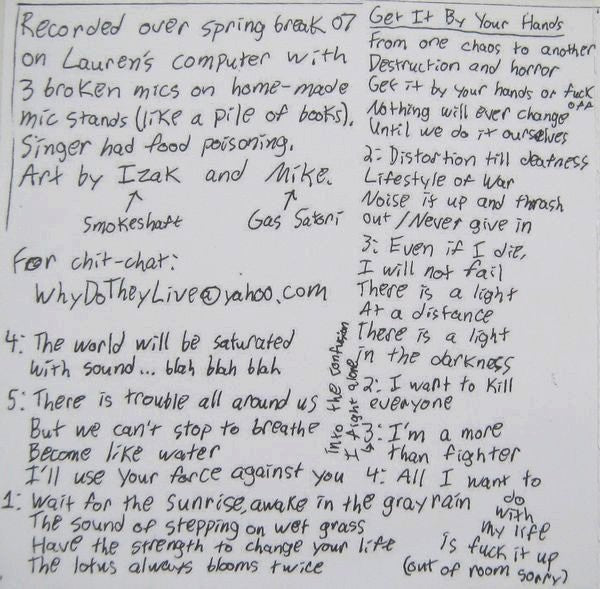 Recorded over spring break 07
on Lauren's computer with
3 broken mics on home-made
mic stands (like a pile of books).
Singer had food poisoning.
Art by Izak and Mike.
Smokeshaft
Gas Satori
For chit-chat:
WhyDoTheyLive@yahoo.com
Get It By Your Hands
From one chaos to another
Destruction and horror
Get it by your hands or fuck
off
Nothing will ever change
Until we do it ourselves
2: Distortion till deafness
Lifestyle of War
Noise is up and thrash
out / Never give in
3: Even if I die,
I will not fail
There is a light
At a distance
There is a light
in the darkness
2: I want to kill
everyone
into the confusion
I fight alone
3: I'm a more
than fighter
4: All I want to
do
with
my life
is fuck it up
(out of room sorry)
4: The world will be saturated
with sound... blah blah blah
5: There is trouble all around us
But we can't stop to breathe
Become like water
I'll use your force against you
1: Wait for the sunrise, awake in the gray rain
The sound of stepping on wet grass
Have the strength to change your life
The lotus always blooms twice